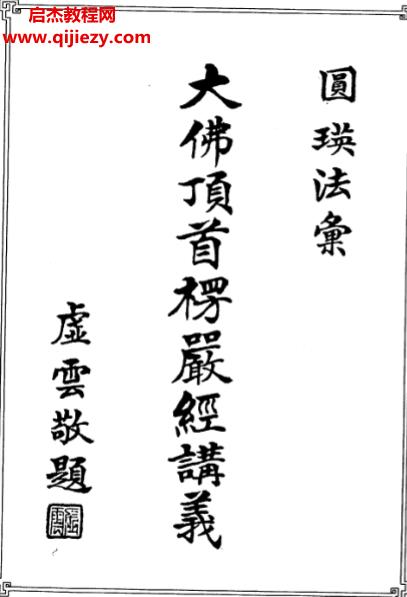 启杰教程网
www.qijiezy.com
圓瑛法彙
大佛頂首楞嚴經講義
虛雲敬題